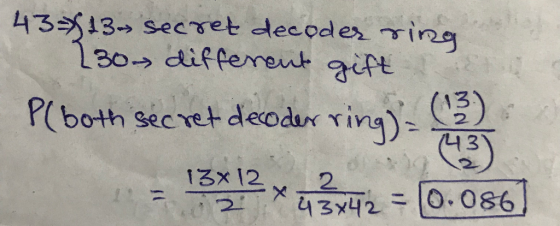 43⇒{13→ secret decoder ring
{30→ different gift
P(both secret decoder ring) = (13 2) / (43 2)
= 13×12/2 × 2/43×42 = 0.086